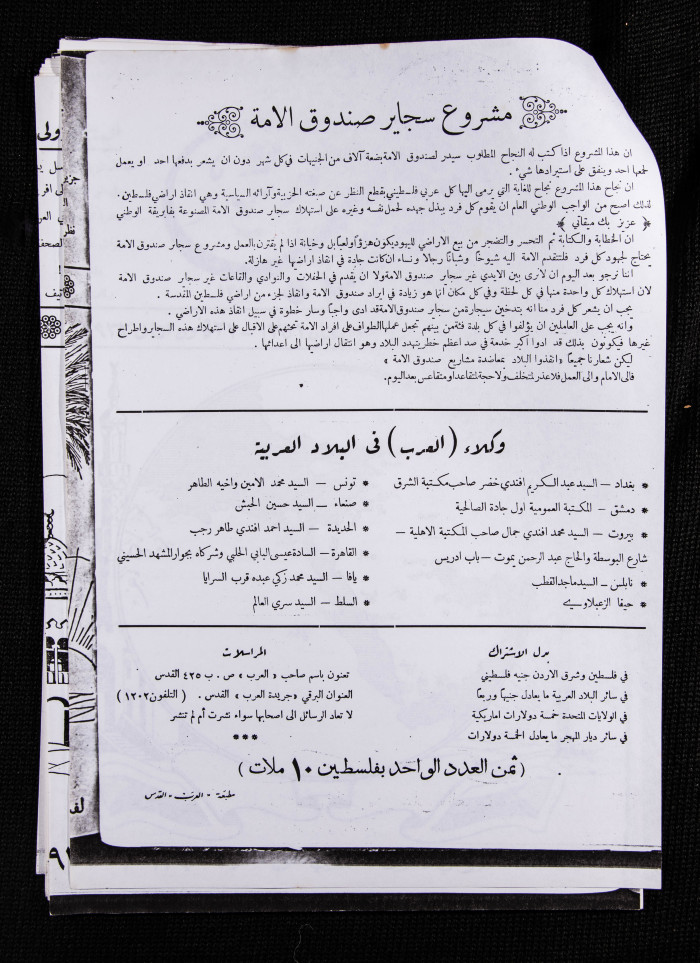 مشروع سجاير صندوق الامة
ان هذا المشروع اذا كتب له النجاح المطلوب سيدر لصندوق الامة بضعة آلاف من الجنيهات في كل شهر دون ان يشعر بدفعها احد او يعمل
لجمعها احد وينفق على استيرادها شيء .
ان نجاح هذا المشروع نجاح للغاية التي يرمى اليها كل عربي فلسطيني بقطع النظر عن صبغته الحزبية وآرائه السياسية وهي انقاذ اراضي فلسطين .
لذلك اصبح من الواجب الوطني العام ان يقوم كل فرد ببذل جهده لحمل نفسه وغيره على استهلاك سجاير صندوق الامة المصنوعة بفابريقة الوطني
﴿ عزيز بك ميقاتي ﴾
ان الخطابة والكتابة ثم التحسر والتضجر من بيع الاراضي لليهود يكون هزؤاً ولعباً بل وخيانة اذا لم يقترن بالعمل ومشروع سجاير صندوق الامة
يحتاج لجهود كل فرد فلتتقدم الامة اليه شيوخاً وشباناً رجالا ونساء ان كانت جادة في انقاذ اراضيها غير هازلة .
اننا نرجو بعد اليوم ان لا نرى بين الايدي غير سجاير صندوق الامة ولا ان يقدم في الحفلات والنوادي والقاعات غير سجاير صندوق الامة
لان استهلاك كل واحدة منها في كل لحظة وفي كل مكان انما هو زيادة في ايراد صندوق الامة وانقاذ لجزء من اراضي فلسطين المقدسة .
يجب ان يشعر كل فرد منا انه بتدخين سيجارة من سجاير صندوق الامة قد ادى واجباً وسار خطوة في سبيل انقاذ هذه الاراضي .
وانه يجب على العاملين ان يؤلفوا في كل بلدة فئة من بينهم تجعل عملها الطواف على افراد الامة تحثهم على الاقبال على استهلاك هذه السجاير واطراح
غيرها فيكونون بذلك قد ادوا اكبر خدمة في صد اعظم خطر يتهدد البلاد وهو انتقال اراضيها الى اعدائها .
ليكن شعارنا جميعاً « انقذوا البلاد بمعاضدة مشاريع صندوق الامة »
فالى الامام والى العمل فلا عذر لمتخلف ولا حجة لمتقاعد او متقاعس بعد اليوم .
وكلاء ( العرب ) في البلاد العربية
* بغداد – السيد عبد الكريم افندي خضر صاحب مكتبة الشرق
* دمشق – المكتبة العمومية اول جادة الصالحية
* بيروت – السيد محمد افندي جمال صاحب المكتبة الاهلية –
شارع البوسطة والحاج عبد الرحمن يموت – باب ادريس
* نابلس – السيد ماجد القطب
* حيفا الزعبلاوي
* تونس – السيد محمد الامين واخيه الطاهر
* صنعاء – السيد حسين الحبش
* الحديدة – السيد احمد افندي طاهر رجب
* القاهرة – السادة عيسى البابي الحلبي وشركاه بجوار المشهد الحسيني
* يافا – السيد محمد زكي عبده قرب السرايا
* السلط – السيد سري العالم
بدل الاشتراك
في فلسطين وشرق الاردن جنيه فلسطيني
في سائر البلاد العربية ما يعادل جنيهاً وربعاً
في الولايات المتحدة خمسة دولارات اماريكية
في سائر ديار المهجر ما يعادل الخمسة دولارات
المراسلات
تعنون باسم صاحب « العرب » ص . ب ٤٢٥ القدس
العنوان البرقي « جريدة العرب » القدس . ( التلفون ١٢٠٢ )
لا تعاد الرسائل الى اصحابها سواء نشرت أم لم تنشر
***
( ثمن العدد الواحد بفلسطين ١٠ ملات )
مطبعة - العرب - القدس